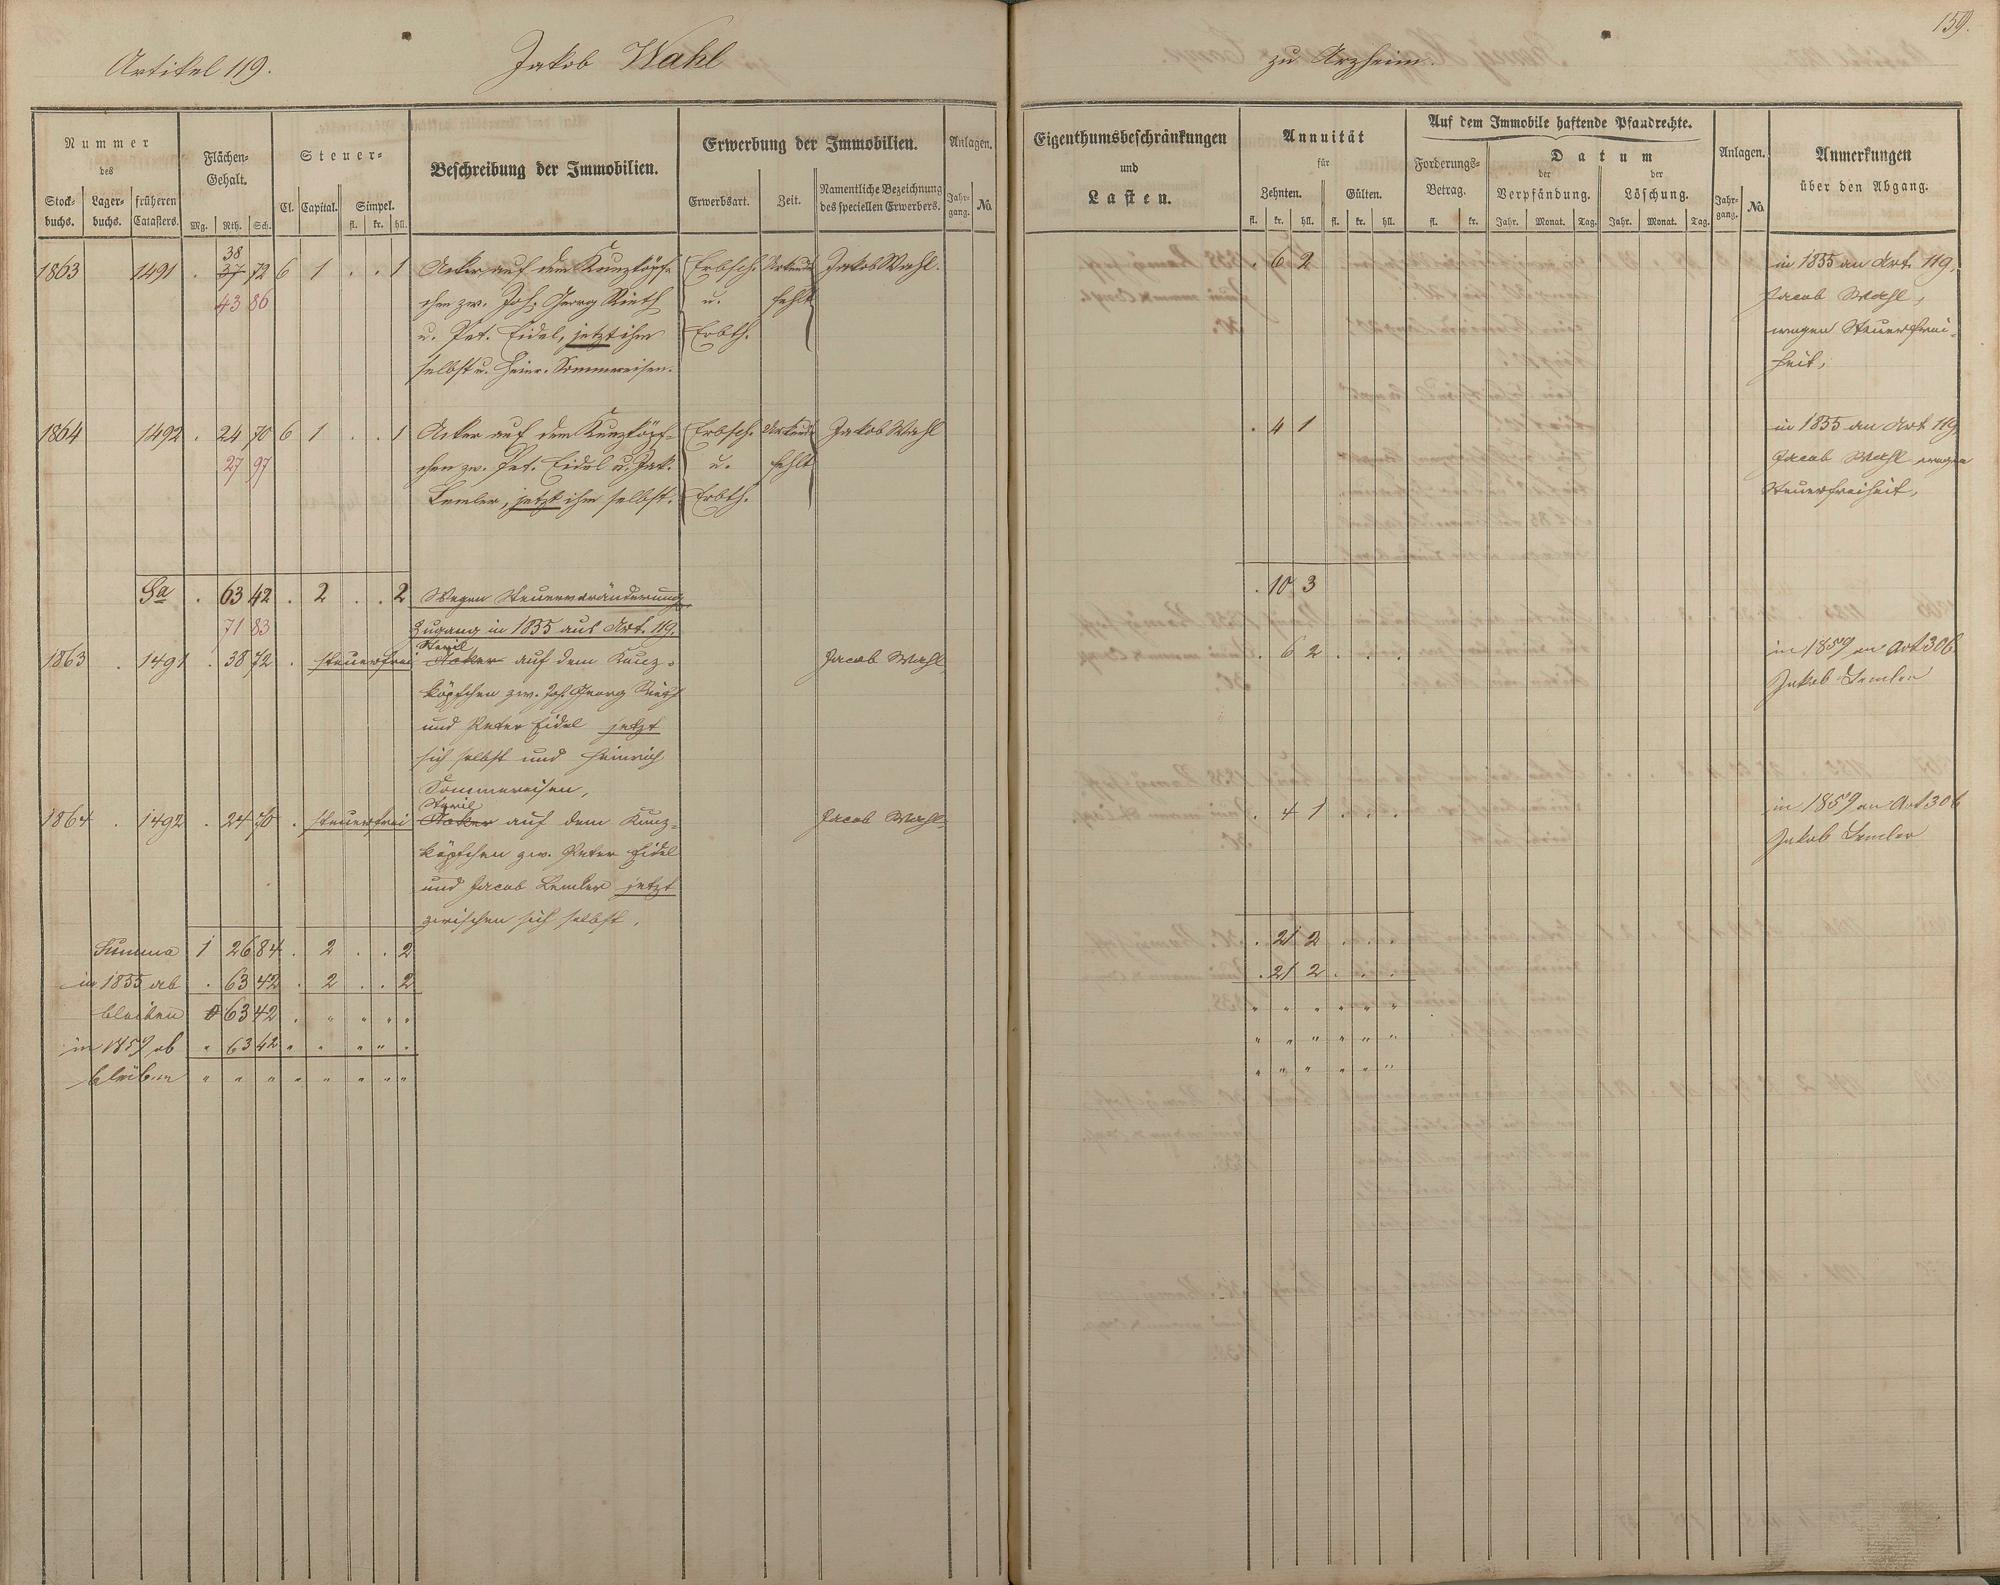 159.
Artikel 119. Jakob Wahl zu Arzheim.
Nummer des
Stockbuchs. Lagerbuchs. früheren Catasters.
Flächen-Gehalt.
Mg. Rth. Sch.
Steuer-
Cl. Capital. Simpel.
fl. kr. hll.
Beschreibung der Immobilien.
Erwerbung der Immobilien.
Erwerbsart. Zeit. Namentliche Bezeichnung des speciellen Erwerbers.
Anlagen.
Jahrgang. No.
Eigenthumsbeschränkungen
und
Lasten.
Annuität
für
Zehnten. Gülten.
fl. kr. hll. fl. kr. hll.
Auf dem Immobile haftende Pfandrechte.
Forderungs-Betrag.
fl. kr.
Datum
der Verpfändung. der Löschung.
Jahr. Monat. Tag. Jahr. Monat. Tag.
Anlagen.
Jahrgang. No.
Anmerkungen
über den Abgang.
38
1863 1491 . 37 72 6 1 . . 1 Acker auf dem Kunzköpf= Erbsch. Urkunde Jakob Wahl. . 6 2 in 1855 an Art. 119,
43 86 chen zw. Joh. Georg Rieth u. fehlt Jacob Wahl,
u. Pet. Eidel, jetzt ihm Erbth. wegen Steuerfrei-
selbst u. Heinr. Sommereisen. heit,
1864 1492 . 24 70 6 1 . . 1 Acker auf dem Kunzköpf= Erbsch. Urkunde Jakob Wahl . 4 1 in 1855 an Art 119
27 97 chen zw. Pet. Eidel u. Jak. u. fehlt Jacob Wahl wegen
Lemler, jetzt ihm selbst. Erbth. Steuerfreiheit,
Sa . 63 42 . 2 . . 2 Wegen Steuerveränderung . 10 3
71 83 Zugang in 1855 aus Art. 119.
Steril
1863 . 1491 . 38 72 . steuerfrei Acker auf dem Kunz= Jacob Wahl . 6 2 . . . in 1859 an Art 306
köpfchen zw. Joh. Georg Rieth Jakob Lemler
und Peter Eidel jetzt
sich selbst und Heinrich
Sommereisen,
Steril
1864 . 1492 . 24 70 . steuerfrei Acker auf dem Kunz= Jacob Wahl . 4 1 . . . in 1859 an Art 306
köpfchen zw. Peter Eidel Jakob Lemler
und Jacob Lemler jetzt
zwischen sich selbst,
Summa 1 26 84 . 2 . . 2 . 21 2 . . .
in 1855 ab . 63 42 . 2 . . 2 . 21 2 . . .
bleiben 63 42 . " " " " " " " " " "
in 1859 ab " 63 42 " " " " " " " " " " "
bleiben " " " " " " " " " " " " " "